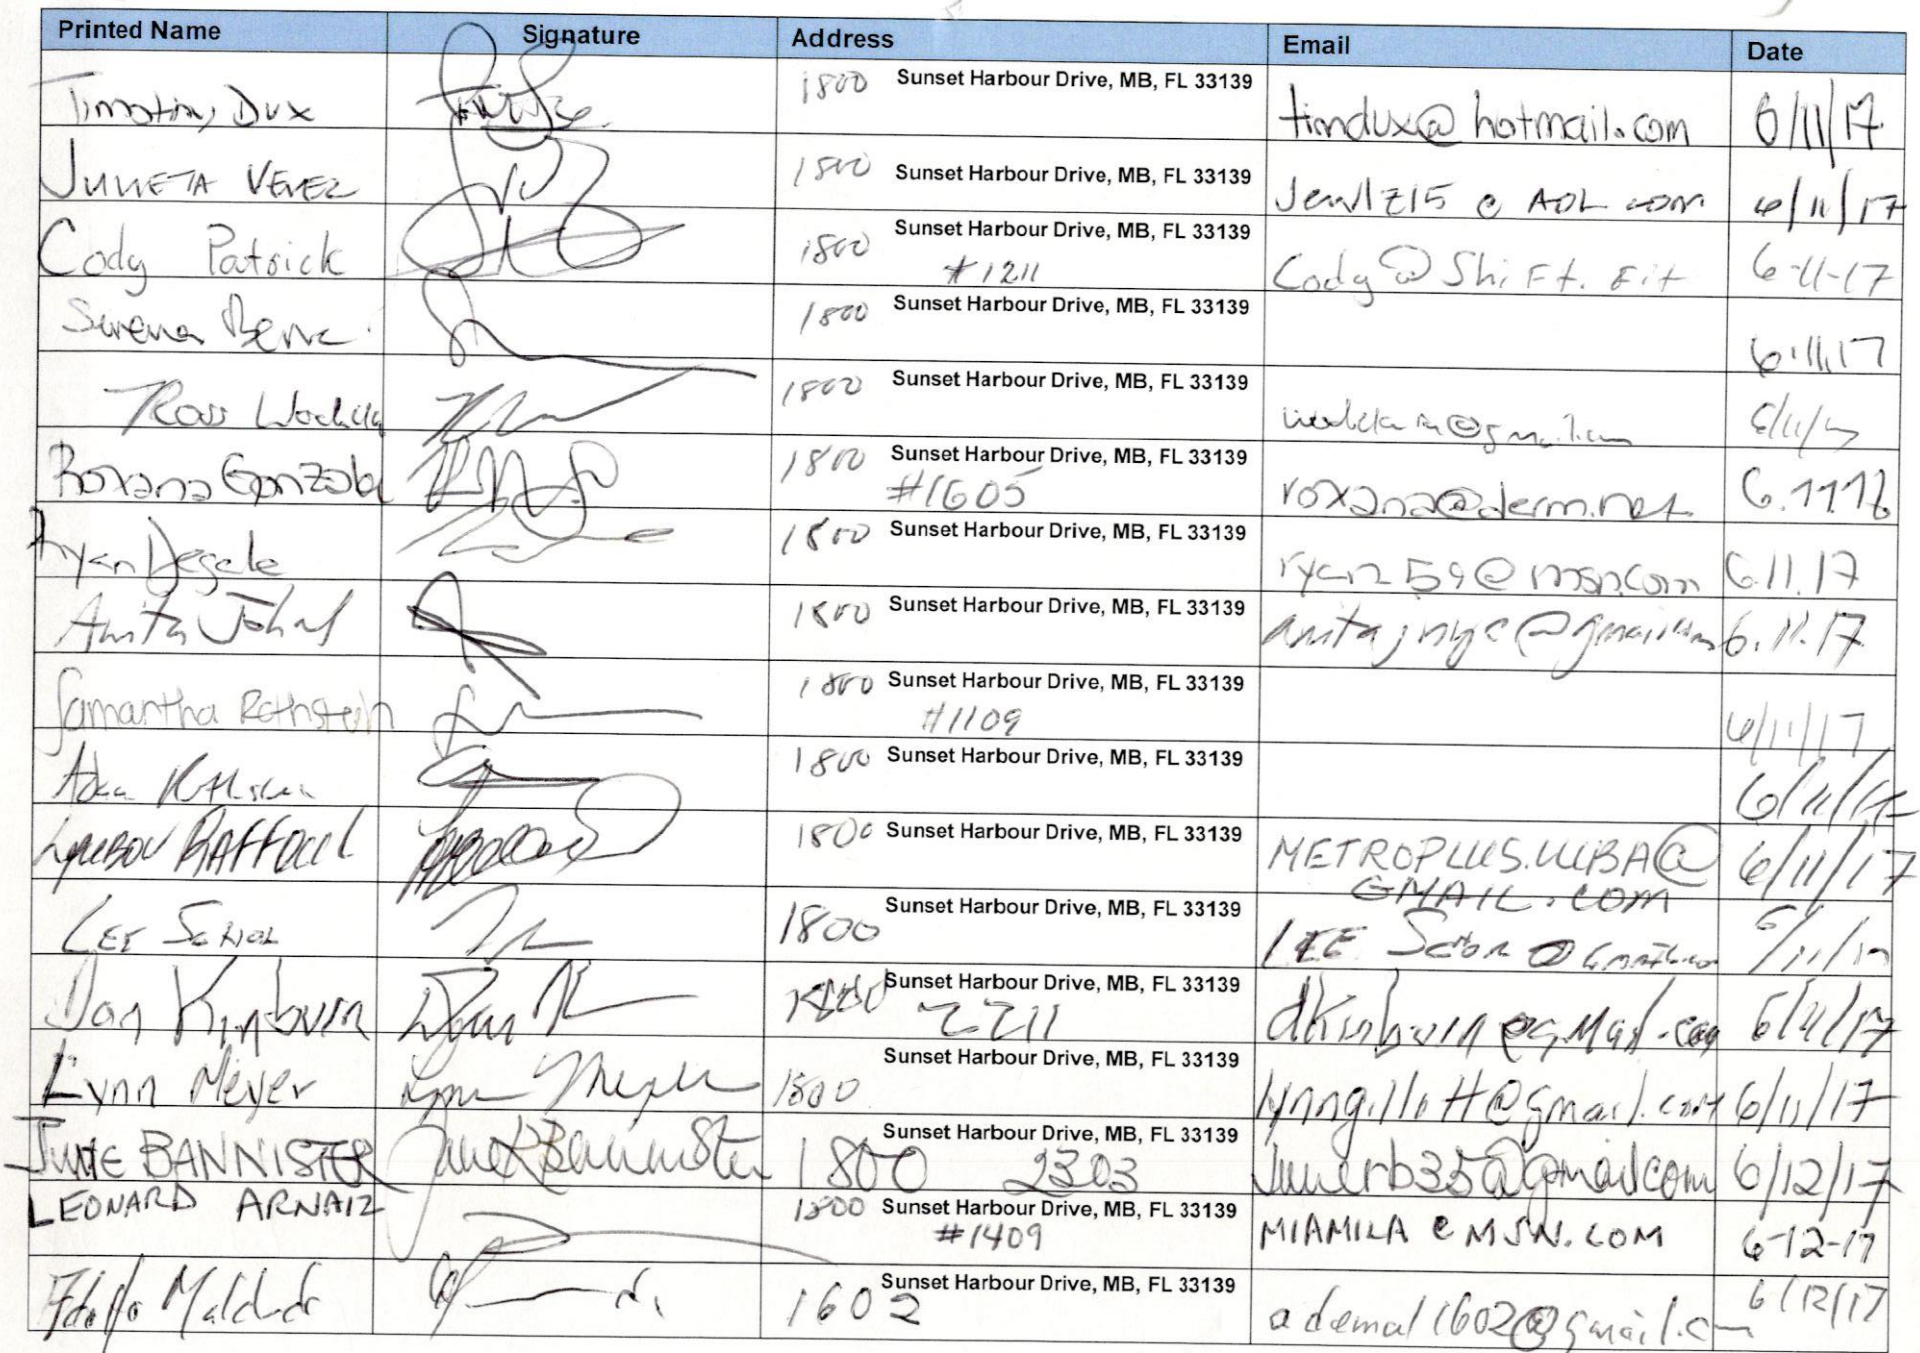 Printed Name Signature Address Email Date
Timothy Dux 1800 Sunset Harbour Drive, MB, FL 33139 timdux@hotmail.com 6/11/17
1800 Sunset Harbour Drive, MB, FL 33139 @ AOL.com 6/11/17
Cody Patrick 1800 Sunset Harbour Drive, MB, FL 33139 Cody@Shift.Fit 6-11-17
#1211
1800 Sunset Harbour Drive, MB, FL 33139 6.11.17
Ross 1800 Sunset Harbour Drive, MB, FL 33139
Roxana Gonzalez 1800 Sunset Harbour Drive, MB, FL 33139 roxana@derm.net
#1605
Ryan 1800 Sunset Harbour Drive, MB, FL 33139 ryan59@msn.com 6.11.17
Anita Johal 1800 Sunset Harbour Drive, MB, FL 33139 6.11.17
Samantha Rothstein 1800 Sunset Harbour Drive, MB, FL 33139 6/11/17
#1109
1800 Sunset Harbour Drive, MB, FL 33139 6/11/17
1800 Sunset Harbour Drive, MB, FL 33139 6/11/17
GMAIL.COM
LEE 1800 Sunset Harbour Drive, MB, FL 33139
Dan Kinburn Dan 1800 Sunset Harbour Drive, MB, FL 33139 dkinburn@gmail.com 6/11/17
2211
Lynn Meyer Lynn Meyer 1800 Sunset Harbour Drive, MB, FL 33139 lynngillott@gmail.com 6/11/17
JUNE BANNISTER June R Bannister 1800 2303 Sunset Harbour Drive, MB, FL 33139 junerb35@gmail.com 6/12/17
LEONARD ARNAIZ 1800 Sunset Harbour Drive, MB, FL 33139 MIAMILA@MSN.COM 6-12-17
#1409
1602 Sunset Harbour Drive, MB, FL 33139 ademal1602@gmail.c 6/12/17